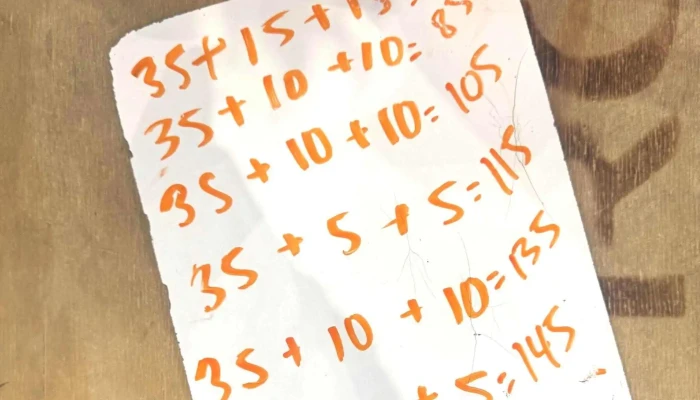 35+15+15=
35+10+10=85
35+10+10=105
35+5+5=115
35+10+10=135
+5=145